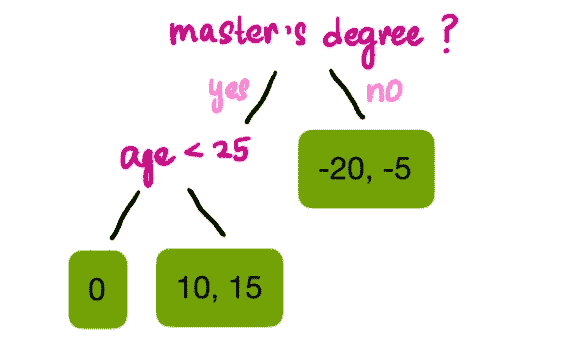 master's degree ?
yes
no
age < 25
-20, -5
0
10, 15